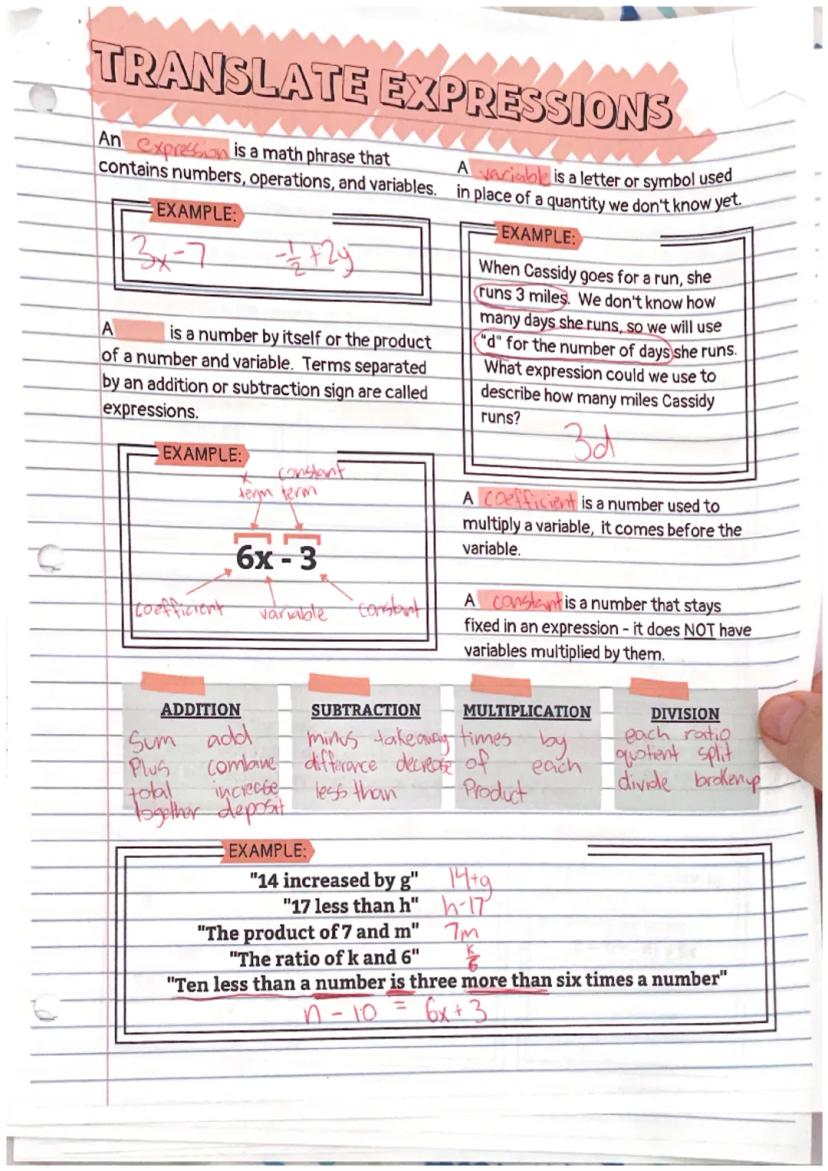 TRANSLATE EXPRESSIONS
An expression is a math phrase that
contains numbers, operations, and variables.
EXAMPLE:
3x-7 -1/2+2y
A is a number by itself or the product
of a number and variable. Terms separated
by an addition or subtraction sign are called
expressions.
EXAMPLE:
x constant
term term
6x - 3
coefficient variable constant
A variable is a letter or symbol used
in place of a quantity we don't know yet.
EXAMPLE:
When Cassidy goes for a run, she
runs 3 miles. We don't know how
many days she runs, so we will use
"d" for the number of days she runs.
What expression could we use to
describe how many miles Cassidy
runs?
3d
A coefficient is a number used to
multiply a variable, it comes before the
variable.
A constant is a number that stays
fixed in an expression - it does NOT have
variables multiplied by them.
ADDITION
Sum add
Plus combine
total increase
together deposit
SUBTRACTION
minus takeaway
difference decrease
less than
MULTIPLICATION
times by
of each
Product
DIVISION
each ratio
quotient split
divide brokenup
EXAMPLE:
"14 increased by g" 14+g
"17 less than h" h-17
"The product of 7 and m" 7m
"The ratio of k and 6" k/6
"Ten less than a number is three more than six times a number"
n - 10 = 6x+3